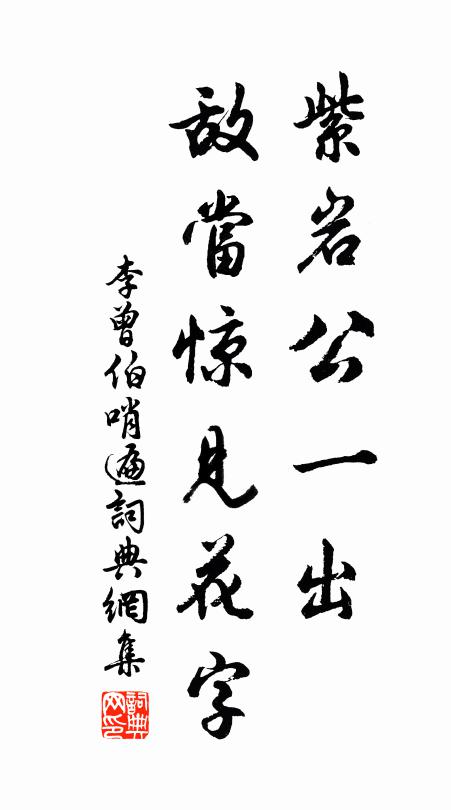 紫岩公一出
敌當惊見花字
李曾伯哨遍詞典網集
詞典网印